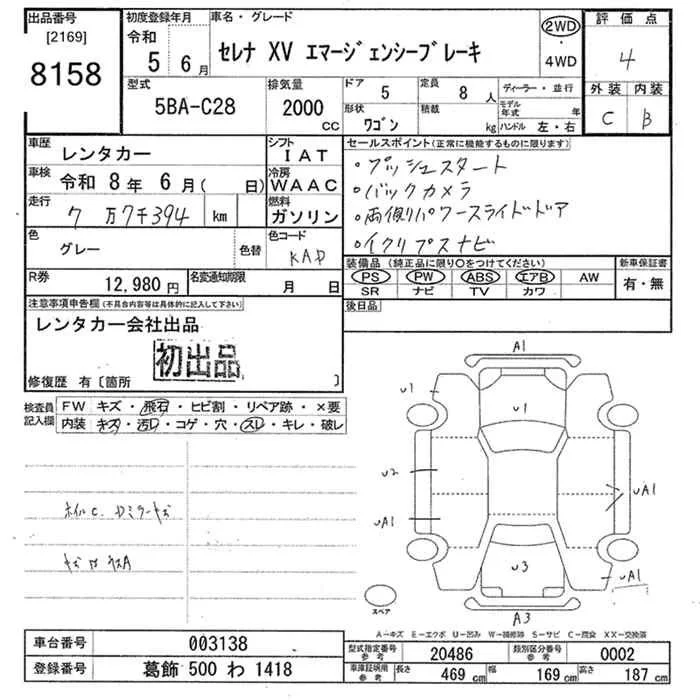 出品番号
[2169]
8158
初度登録年月
令和
5 6月
車名・グレード
セレナ XV エマージェンシーブレーキ
2WD
・
4WD
評価点
4
外装 内装
C B
型式
5BA-C28
排気量
2000
CC
ドア
5
定員
8 人
形状
ワゴン
積載
kg
ディーラー・並行
モデル年式 年
ハンドル 左・右
車歴
レンタカー
シフト
IAT
車検
令和 8年 6月( 日)
冷房
WAAC
走行
7万7千394 km
燃料
ガソリン
色
グレー
色替
色コード
KAD
R券
12,980円
名変通知期限
月 日
セールスポイント(正常に機能するものに限ります)
・プッシュスタート
・バックカメラ
・両側パワースライドドア
・イクリプスナビ
装備品(純正品に限り○をつけてください)
PS PW ABS エアB AW
SR ナビ TV カワ
新車保証書
有・無
後日品
注意事項申告欄(不具合内容等は具体的に記入して下さい)
レンタカー会社出品
初出品
修復歴 有〔箇所 〕
検査員
記入欄
FW キズ・飛石・ヒビ割・リペア跡・×要
内装 キズ・汚レ・コゲ・穴・スレ・キレ・破レ
A1
U1
U1
U2
UA1
UA1
U3
UA1
A3
スペア
A-キズ E-エクボ U-凹み W-補修跡 S-サビ C-腐食 XX-交換済
車台番号
003138
登録番号
葛飾 500 わ 1418
型式指定番号
参考
20486
類別区分番号
参考
0002
車庫証明用
参考
長さ
469 cm
幅
169 cm
高さ
187 cm